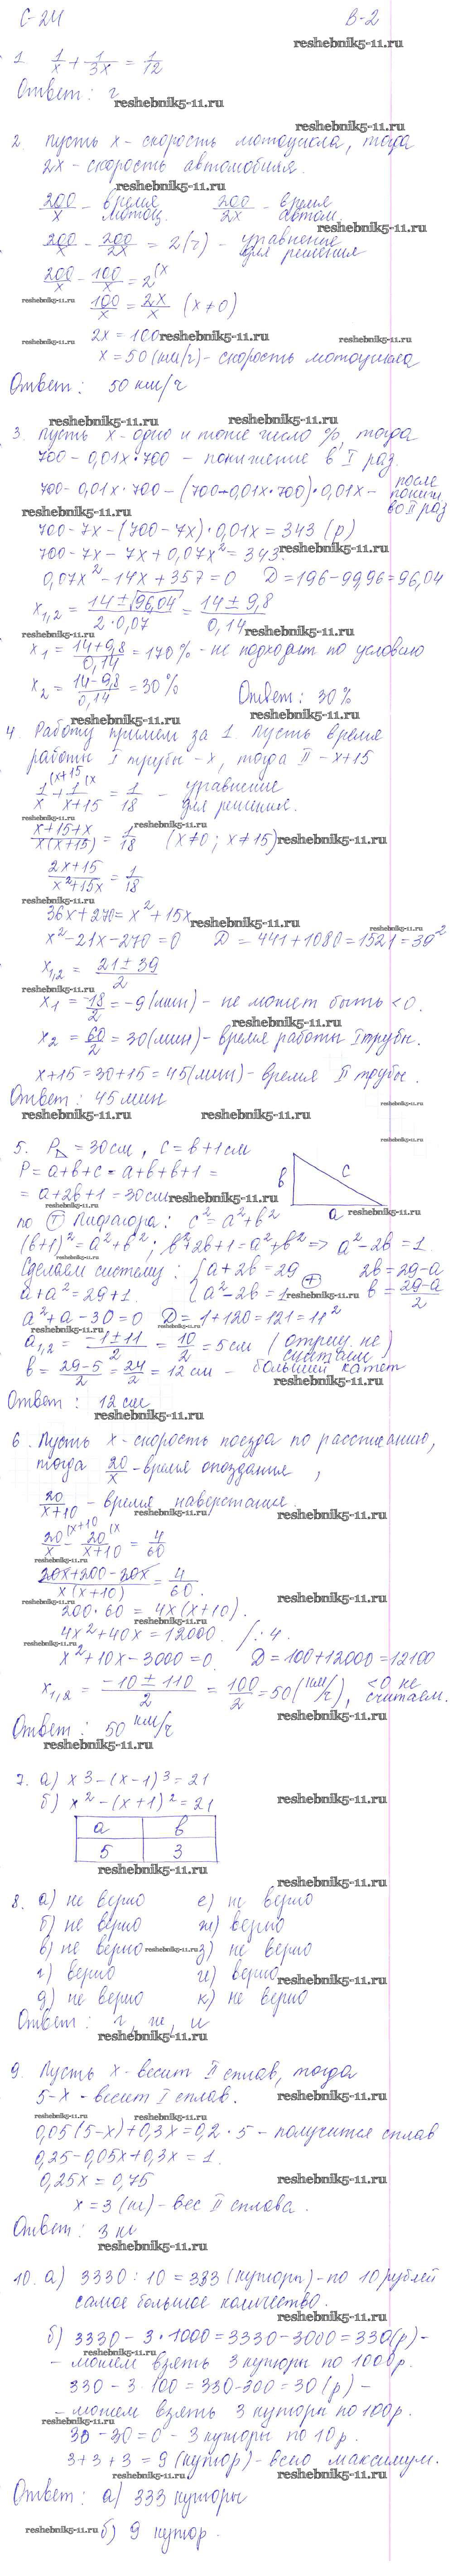 С-24 В-2
reshebnik5-11.ru
1. 1/x + 1/3x = 1/12
Ответ: г
reshebnik5-11.ru
reshebnik5-11.ru
2. Пусть x - скорость мотоцикла, тогда
2x - скорость автомобиля.
reshebnik5-11.ru
200/x - время мотоц. 200/2x - время автом.
reshebnik5-11.ru
200/x - 200/2x = 2(ч) - уравнение для решения
200/x - 100/x = 2 (x
reshebnik5-11.ru
100/x = 2x/x (x≠0)
2x = 100
reshebnik5-11.ru reshebnik5-11.ru reshebnik5-11.ru
x = 50 (км/ч) - скорость мотоцикла
Ответ: 50 км/ч
reshebnik5-11.ru reshebnik5-11.ru
3. Пусть x - одно и тоже число %, тогда
700 - 0,01x·700 - понижение в I раз.
700 - 0,01x·700 - (700-0,01x·700)·0,01x - после пониж. во II раз
reshebnik5-11.ru
700 - 7x - (700 - 7x)·0,01x = 343 (р)
700 - 7x - 7x + 0,07x² = 343.
reshebnik5-11.ru
0,07x² - 14x + 357 = 0 D = 196 - 99,96 = 96,04
x1,2 = 14 ± √96,04 / 2·0,07 = 14 ± 9,8 / 0,14
reshebnik5-11.ru
reshebnik5-11.ru
x1 = 14+9,8 / 0,14 = 170% - не подходит по условию
reshebnik5-11.ru
x2 = 14-9,8 / 0,14 = 30% Ответ: 30%
reshebnik5-11.ru reshebnik5-11.ru
4. Работу примем за 1. Пусть время
работы I трубы - x, тогда II - x+15
1/x (x+15 + 1/x+15 (x = 1/18 - уравнение для решения.
reshebnik5-11.ru reshebnik5-11.ru
x+15+x / x(x+15) = 1/18 (x≠0; x≠15)
reshebnik5-11.ru
2x+15 / x²+15x = 1/18
reshebnik5-11.ru
36x+270 = x²+15x
reshebnik5-11.ru
x² - 21x - 270 = 0 D = 441+1080 = 1521 = 39²
reshebnik5-11.ru
x1,2 = 21 ± 39 / 2
reshebnik5-11.ru
reshebnik5-11.ru
x1 = -18/2 = -9 (мин) - не может быть <0.
reshebnik5-11.ru
x2 = 60/2 = 30 (мин) - время работы I трубы.
reshebnik5-11.ru
x+15 = 30+15 = 45 (мин) - время II трубы.
Ответ: 45 мин
reshebnik5-11.ru reshebnik5-11.ru reshebnik5-11.ru
reshebnik5-11.ru
5. P△ = 30 см, c = b+1 см
P = a+b+c = a+b+b+1 =
= a+2b+1 = 30 см
b c a
reshebnik5-11.ru
reshebnik5-11.ru reshebnik5-11.ru
по Т Пифагора: c² = a²+b²
(b+1)² = a²+b²; b²+2b+1 = a²+b² => a²-2b = 1.
reshebnik5-11.ru
Сделаем систему: { a+2b = 29 2b = 29-a
a + a² = 29+1. { a²-2b = 1 (+) b = 29-a / 2
reshebnik5-11.ru
a²+a-30 = 0 D = 1+120 = 121 = 11²
reshebnik5-11.ru
a1,2 = -1±11 / 2 = 10/2 = 5 см (отриц. не считаем)
reshebnik5-11.ru
b = 29-5 / 2 = 24/2 = 12 см - больший катет
reshebnik5-11.ru
Ответ: 12 см
reshebnik5-11.ru
6. Пусть x - скорость поезда по расписанию,
reshebnik5-11.ru
тогда 20/x - время опоздания,
20/x+10 - время наверстания.
reshebnik5-11.ru reshebnik5-11.ru
20/x (x+10 - 20/x+10 (x = 4/60
reshebnik5-11.ru
20x+200-20x / x(x+10) = 4/60.
reshebnik5-11.ru
reshebnik5-11.ru
200·60 = 4x(x+10).
reshebnik5-11.ru
4x²+40x = 12000 /:4.
reshebnik5-11.ru
x²+10x-3000 = 0. D = 100+12000 = 12100
reshebnik5-11.ru
x1,2 = -10±110 / 2 = 100/2 = 50 (км/ч), <0 не считаем.
reshebnik5-11.ru
Ответ: 50 км/ч
reshebnik5-11.ru
7. а) x³-(x-1)³ = 21
б) x²-(x+1)² = 21
reshebnik5-11.ru
а в
5 3
reshebnik5-11.ru
reshebnik5-11.ru
8. а) не верно е) не верно
б) не верно ж) верно
в) не верно з) не верно
reshebnik5-11.ru
г) верно и) верно
reshebnik5-11.ru
д) не верно к) не верно
Ответ: г, ж, и
reshebnik5-11.ru
9. Пусть x - весит II сплав, тогда
5-x - весит I сплав.
reshebnik5-11.ru
reshebnik5-11.ru reshebnik5-11.ru
0,05(5-x)+0,3x = 0,2·5 - получится сплав
0,25-0,05x+0,3x = 1.
0,25x = 0,75
reshebnik5-11.ru
x = 3 (кг) - вес II сплава.
Ответ: 3 кг
reshebnik5-11.ru
10. а) 3330:10 = 333 (купюры) - по 10 рублей
самое большое количество.
reshebnik5-11.ru
б) 3330 - 3·1000 = 3330-3000 = 330 (р) -
reshebnik5-11.ru
- можем взять 3 купюры по 1000 р.
330 - 3·100 = 330-300 = 30 (р) -
- можем взять 3 купюры по 100 р.
reshebnik5-11.ru
30 - 30 = 0 - 3 купюры по 10 р.
3+3+3 = 9 (купюр) - всего максимум.
reshebnik5-11.ru reshebnik5-11.ru
Ответ: а) 333 купюры
б) 9 купюр.
reshebnik5-11.ru